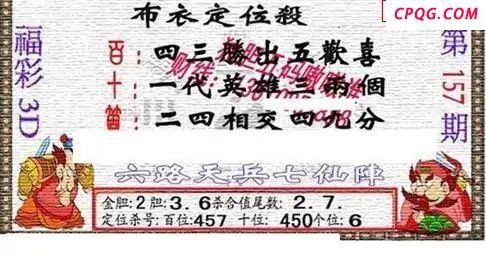 CPQG.COM
布衣定位殺
福彩3D
第157期
百：四三勝出五歡喜
十：一代英雄三兩個
個：二四相交四九分
六路天兵七仙陣
金胆:2胆:3.6杀合值尾数:2.7.
定位杀号:百位:457 十位:450个位:6